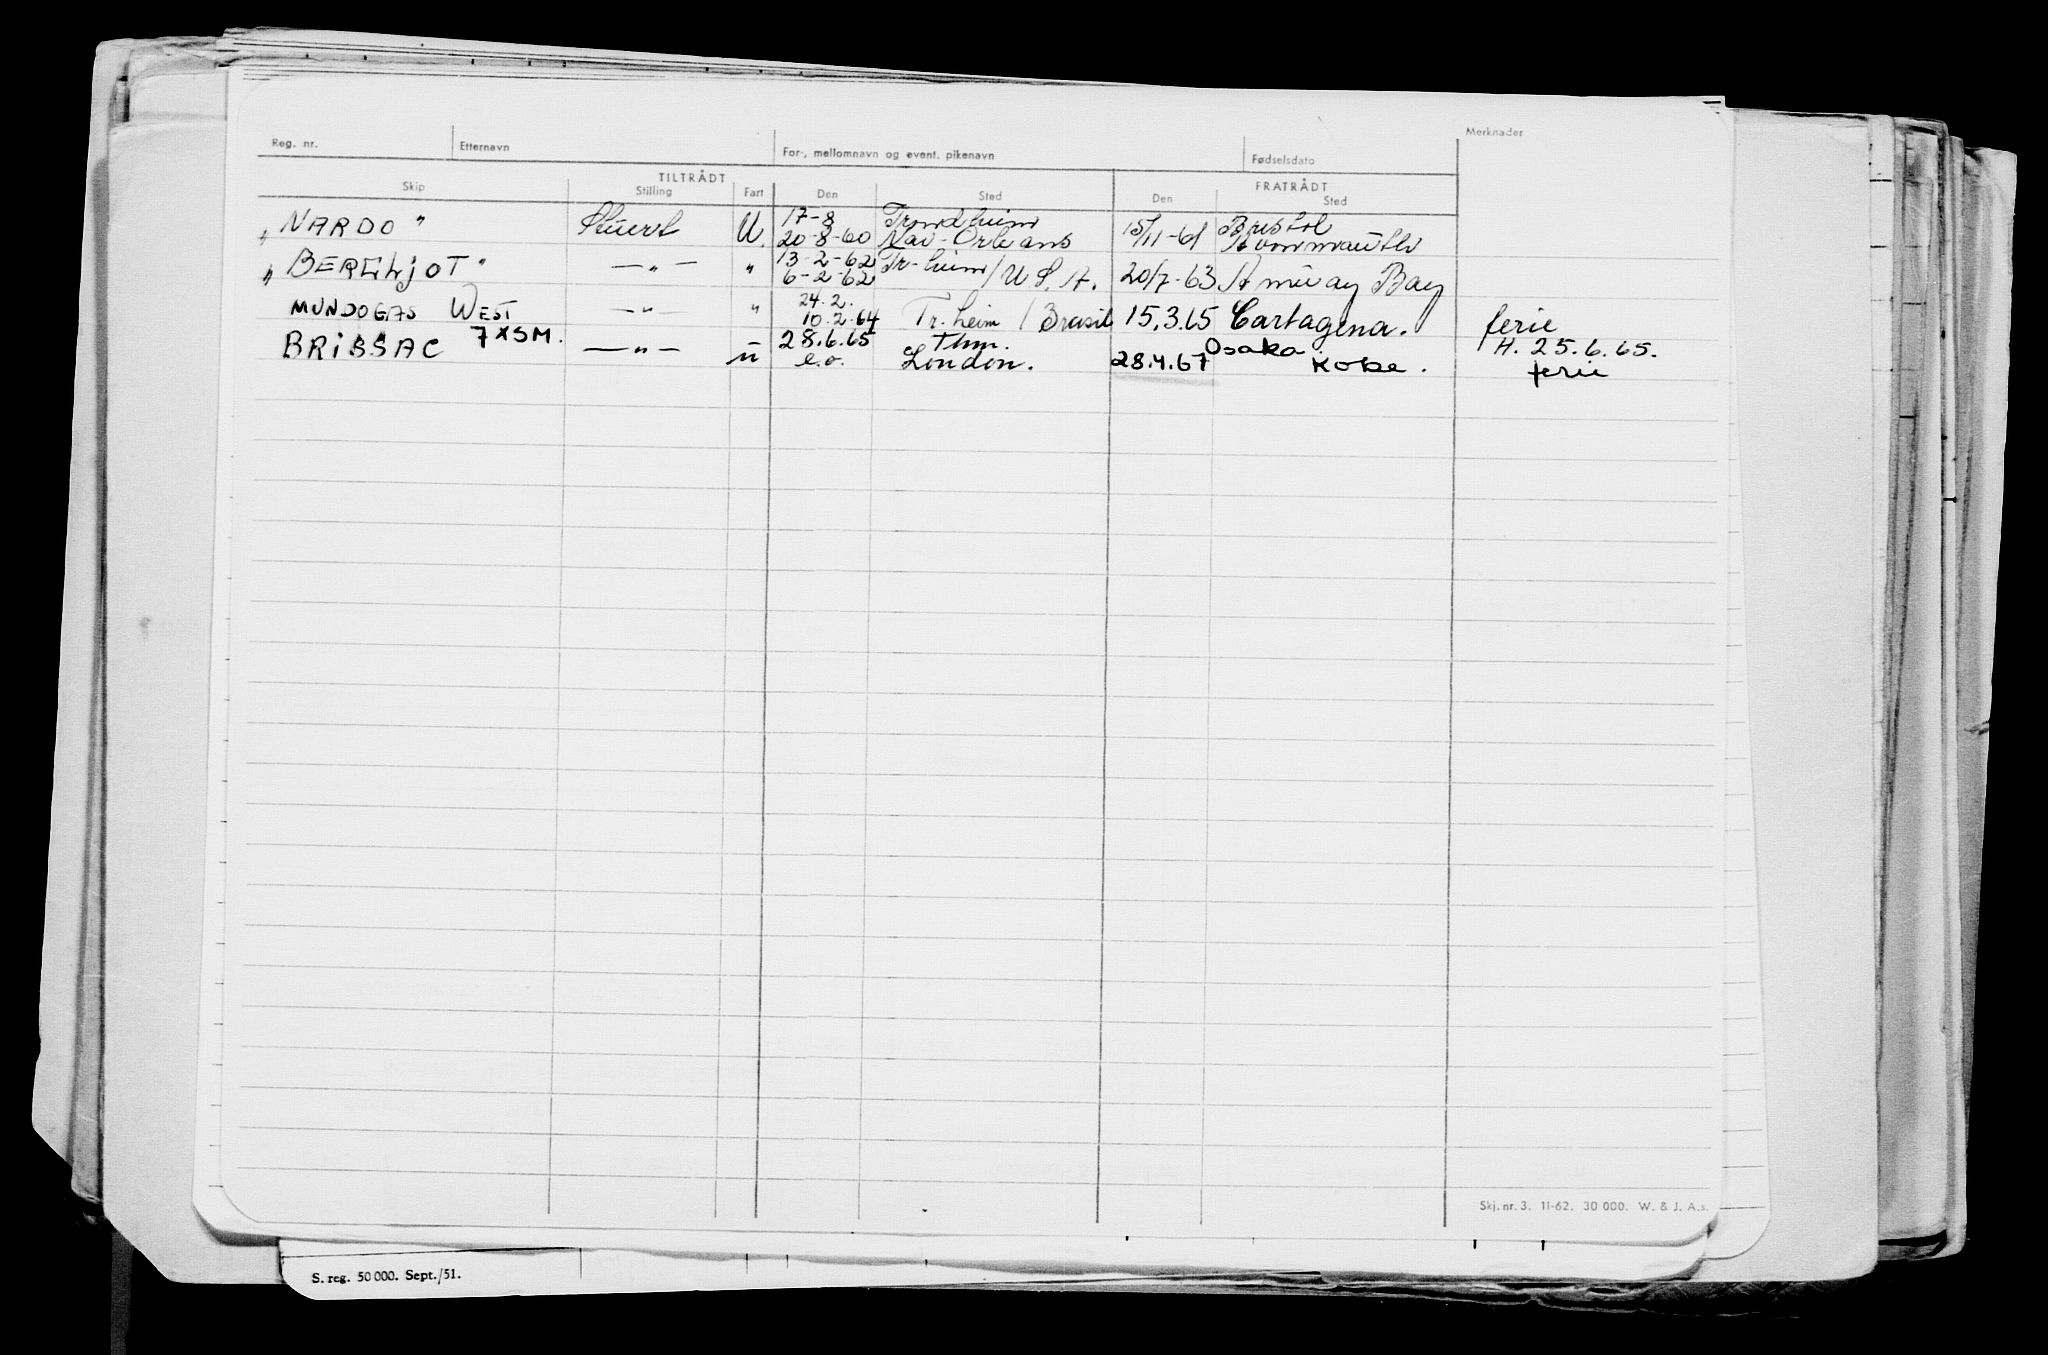 Reg. nr. Etternavn For-, mellomnavn og event. pikenavn Fødselsdato Merknader
TILTRÅDT FRATRÅDT
Skip Stilling Fart Den Sted Den Sted
"NARDO" Stuert U. 17-8 Trondheim 15/11-61 Bristol
20-8-60 Nav-Orleans Avonmouth
"BERGLJOT" —"— " 13-2-62 Tr-heim/U.S.A. 20/7-63 Amuay Bay
6-2-62
MUNDOGAS WEST —"— " 24.2. Tr.heim / Brasil 15.3.65 Cartagena. ferie
10.2.64
BRISSAC 7XSM. —"— u 28.6.65 Thm. 28.4.67 Osaka H. 25.6.65.
e.o. London. Kobe. ferie
Skj. nr. 3. 11-62. 30 000. W. & J. A.s.
S. reg. 50 000. Sept./51.